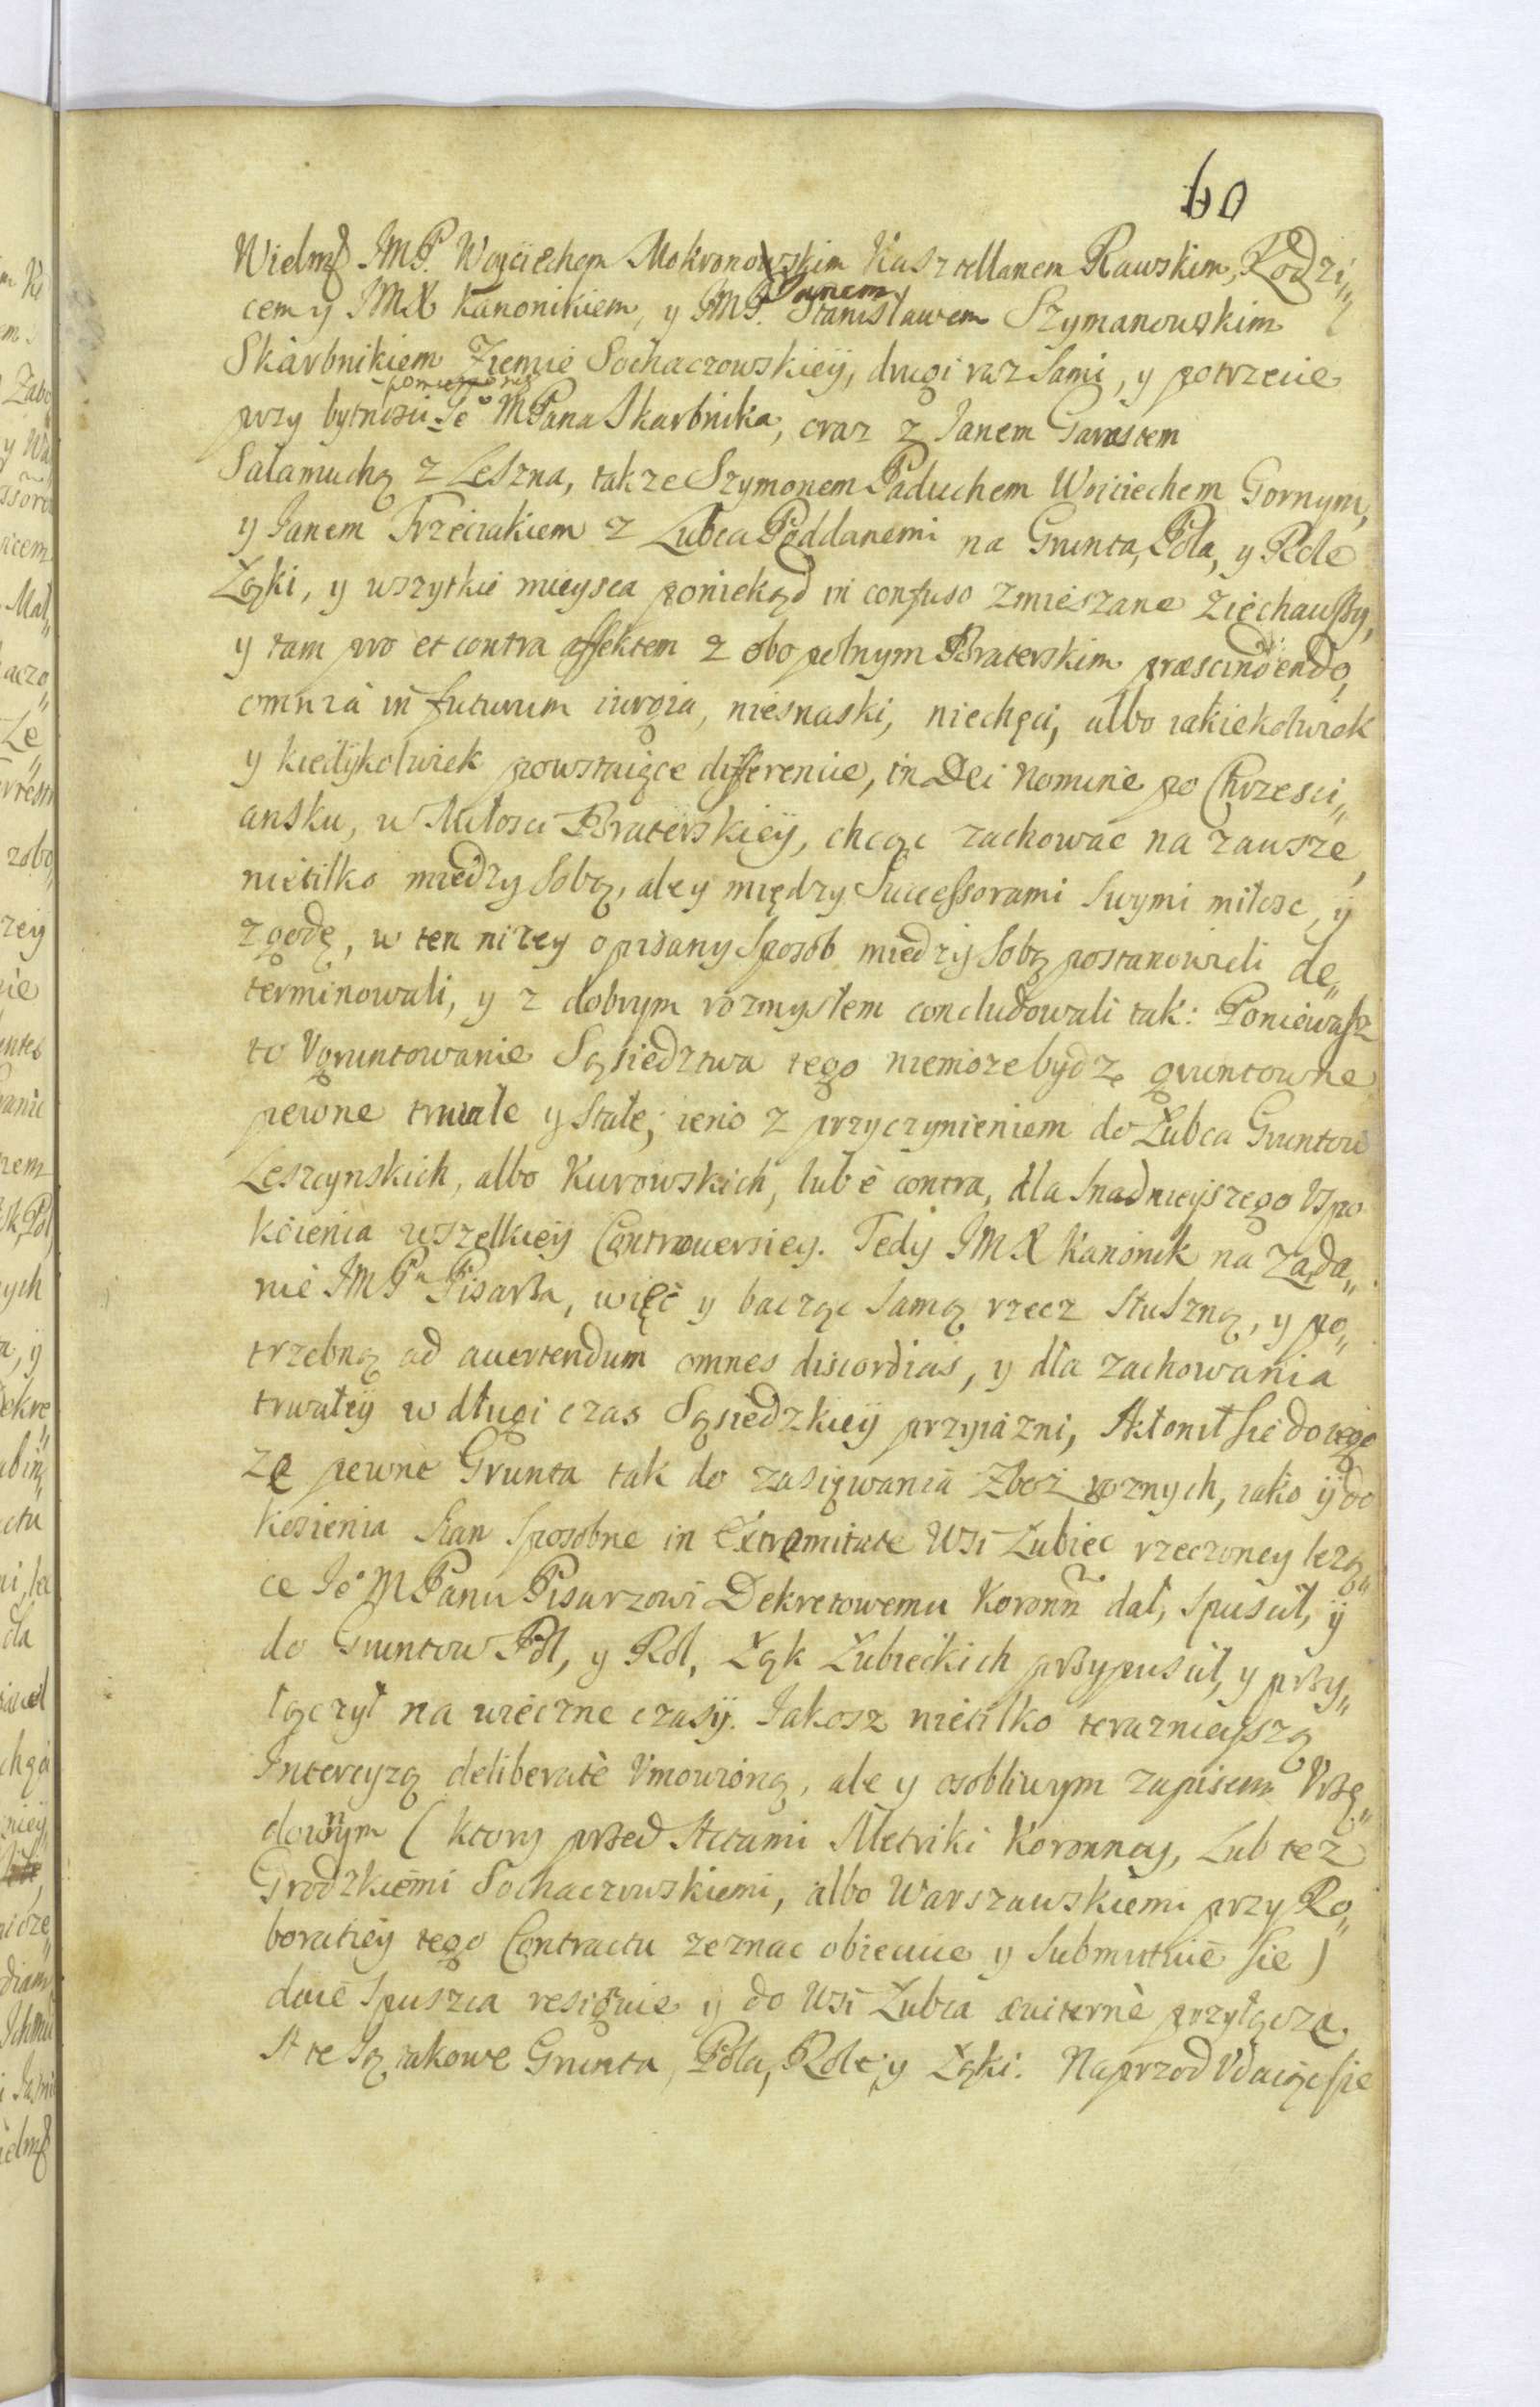 60
Wielmż JMP. Woyciechem Mokronowskim Kasztellanem Rawskim, Rodzi„
cem y JMX Kanonikiem, y JMP. Janem Stanisławem Szymanowskim
Skarbnikiem Ziemie Sochaczowskieÿ, drugi raz sami, y potrzecie
przy bytności Je° MPana Skarbnika, oraz z Janem Garastem
Sałamuchą z Leszna, takze Szymonem Paduchem Woiciechem Gornym,
y Janem Trzeciakiem z Łubca Poddanemi na Grunta, Pola, y Role
Łąki, y wszytkie mieysca poniekąd in confuso zmieszane ziechawszy,
y tam pro et contra affektem z obopolnym Braterskim præscindendo,
omnia in futurum iurgia, niesnaski, niechęci, albo iakiekolwiek
y kiedÿkolwiek powstaiące differencie, in Dei Nomine po Chrzesci„
ansku, w Miłosci Braterskieÿ, chcąc zachowac na zawsze,
nietilko miedzy sobą, ale y między Successorami swymi miłosc, ÿ
zgodę, w ten nizey opisany sposob miedzÿ sobą postanowili de„
terminowali, y z dobrym rozmysłem concludowali tak: Poniewasz
to Vgruntowanie Sąsiedztwa tego niemoze bydz gruntowne
pewne trwałe y stałe, ieno z przyczynieniem do Łubca Gruntow
Leszcynskich, albo Kurowskich, lub è contra, dla snadnieyszego Vspo
koienia wszelkieÿ Controwersiey. Tedÿ JMX Kanonik na ząda„
nie JMPⁿ Pisarza, więc y bacząc samą rzecz słuszną, y po„
trzebną ad auertendum omnes discordias, y dla zachowania
trwałeÿ w długi czas Sąsiedzkieÿ przyiazni, skłonił sie do tego
ze pewne Grunta tak do zasięwania zboz roznych, iako ÿ do
kosienia Sian sposobne in Extremitate Wsi Łubiec rzeczoney lezą„
ce Je° MPanu Pisarzowi Dekretowemu Koronñ dał, spuscił, ÿ
do Gruntow Pol, y Rol, Łąk Łubieckich przypuscił, y przy„
łączył na wieczne czasÿ. Jakosz nietilko terazniejszą
Intercyzą deliberatè Vmowioną, ale y osobliwym zapisem Vrzę„
downym (ktory przed Actami Metriki Koronney, Lub tez
Grodzkiemi Sochaczewskiemi, albo Warszawskiemi przy Ro„
boratieÿ tego Contractu zeznac obiecuie y submittuie sie)
daie spuszcza resignuie y do Wsi Łubca æuiternè przyłącza.
A te są takowe Grunta, Pola, Role, y Łąki. Naprzod Vdaiąc sie